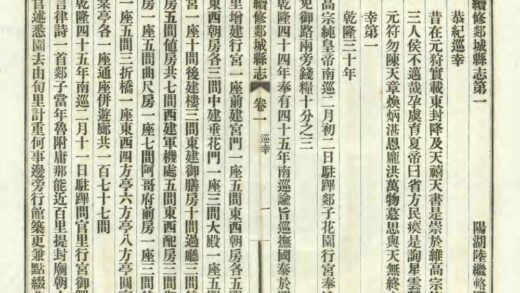 續修郯城縣志第一　陽湖陸繼輅
恭紀巡幸
昔在元符實載東封降及天禧天書是崇於維高宗
三人侯不邁哉孕虞育夏帝曰省方民瘼是詢星雲
元符勿陳天章煥炳湛恩龐洪萬物思與天無終
幸第一
乾隆三十年
高宗純皇帝南巡二月初二日駐蹕郯子花園行宮奉
免御路兩旁錢糧十分之三
乾隆四十四年奉有四十五年南巡諭旨巡撫國泰於
續修郯城縣志　卷一　巡幸　一
里增建行宮一座前建宮門一座五間東西朝房各五
東西朝房各三間中建垂花門一座三間大殿一座
一座十間後建樓三間東建御膳房十間過廳三間
房五間値房共七間西建軍機處五間東西配房三
房五間曲尺房一座七間阿哥府前房一座三間
一座五間三折橋一座東西四方亭六方亭八方亭圓
案亭各一座通座併遊廊共一百七十七間
乾隆四十五年南巡二月十一日駐蹕問官里行宮御
言律詩一首郯子當年魯附庸那能近百里提封廟朝
官述悉園去由旬里計重何事邊旁行館築更兼點綴